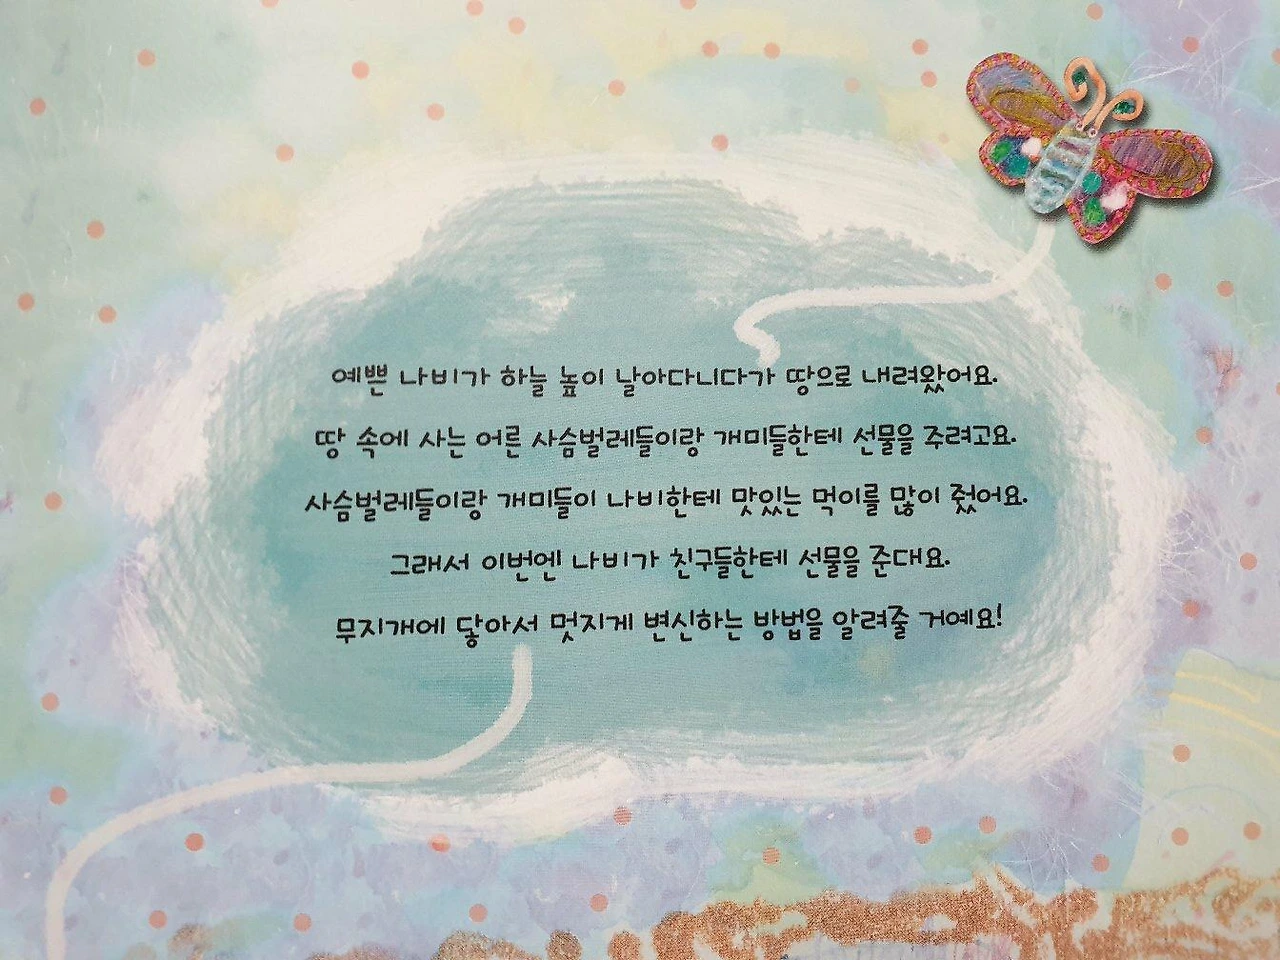 예쁜 나비가 하늘 높이 날아다니다가 땅으로 내려왔어요.
땅 속에 사는 어른 사슴벌레들이랑 개미들한테 선물을 주려고요.
사슴벌레들이랑 개미들이 나비한테 맛있는 먹이를 많이 줬어요.
그래서 이번엔 나비가 친구들한테 선물을 준대요.
무지개에 닿아서 멋지게 변신하는 방법을 알려줄 거예요!